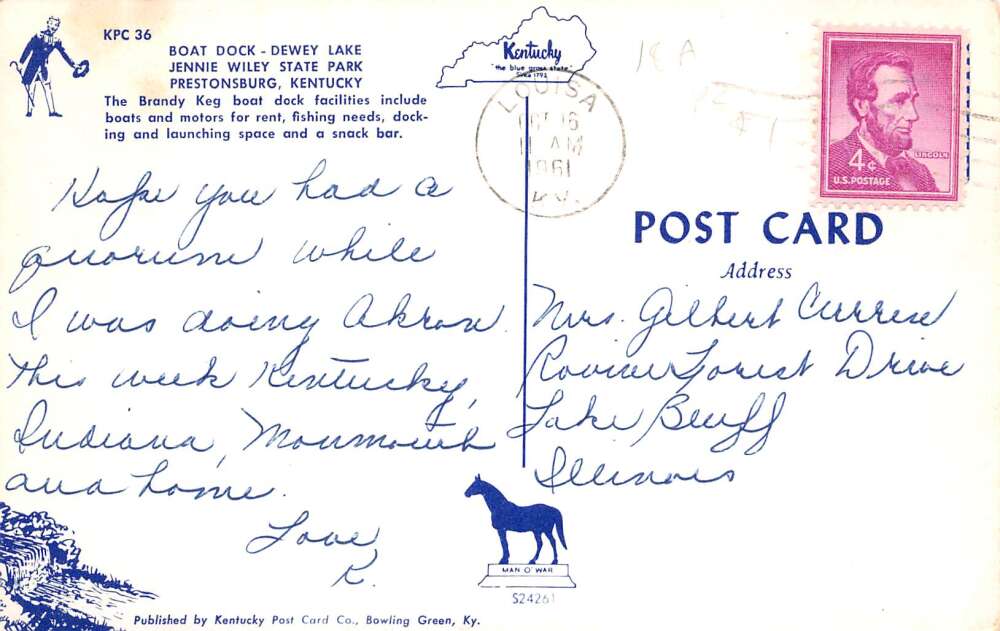 KPC 36
BOAT DOCK - DEWEY LAKE
JENNIE WILEY STATE PARK
PRESTONSBURG, KENTUCKY
The Brandy Keg boat dock facilities include
boats and motors for rent, fishing needs, dock-
ing and launching space and a snack bar.
Kentucky
"the blue grass state"
Since 1792
LOUISA
16
11 AM
1961
KY.
18 A
$1
LINCOLN
4¢
U.S. POSTAGE
Hope you had a
quorum while
I was doing Akron.
This week Kentucky,
Indiana, Monmouth
and home.
Love
R.
POST CARD
Address
Mrs. Gilbert Curren
Forest Drive
Lake Bluff
Illinois
MAN O' WAR
S24261
Published by Kentucky Post Card Co., Bowling Green, Ky.